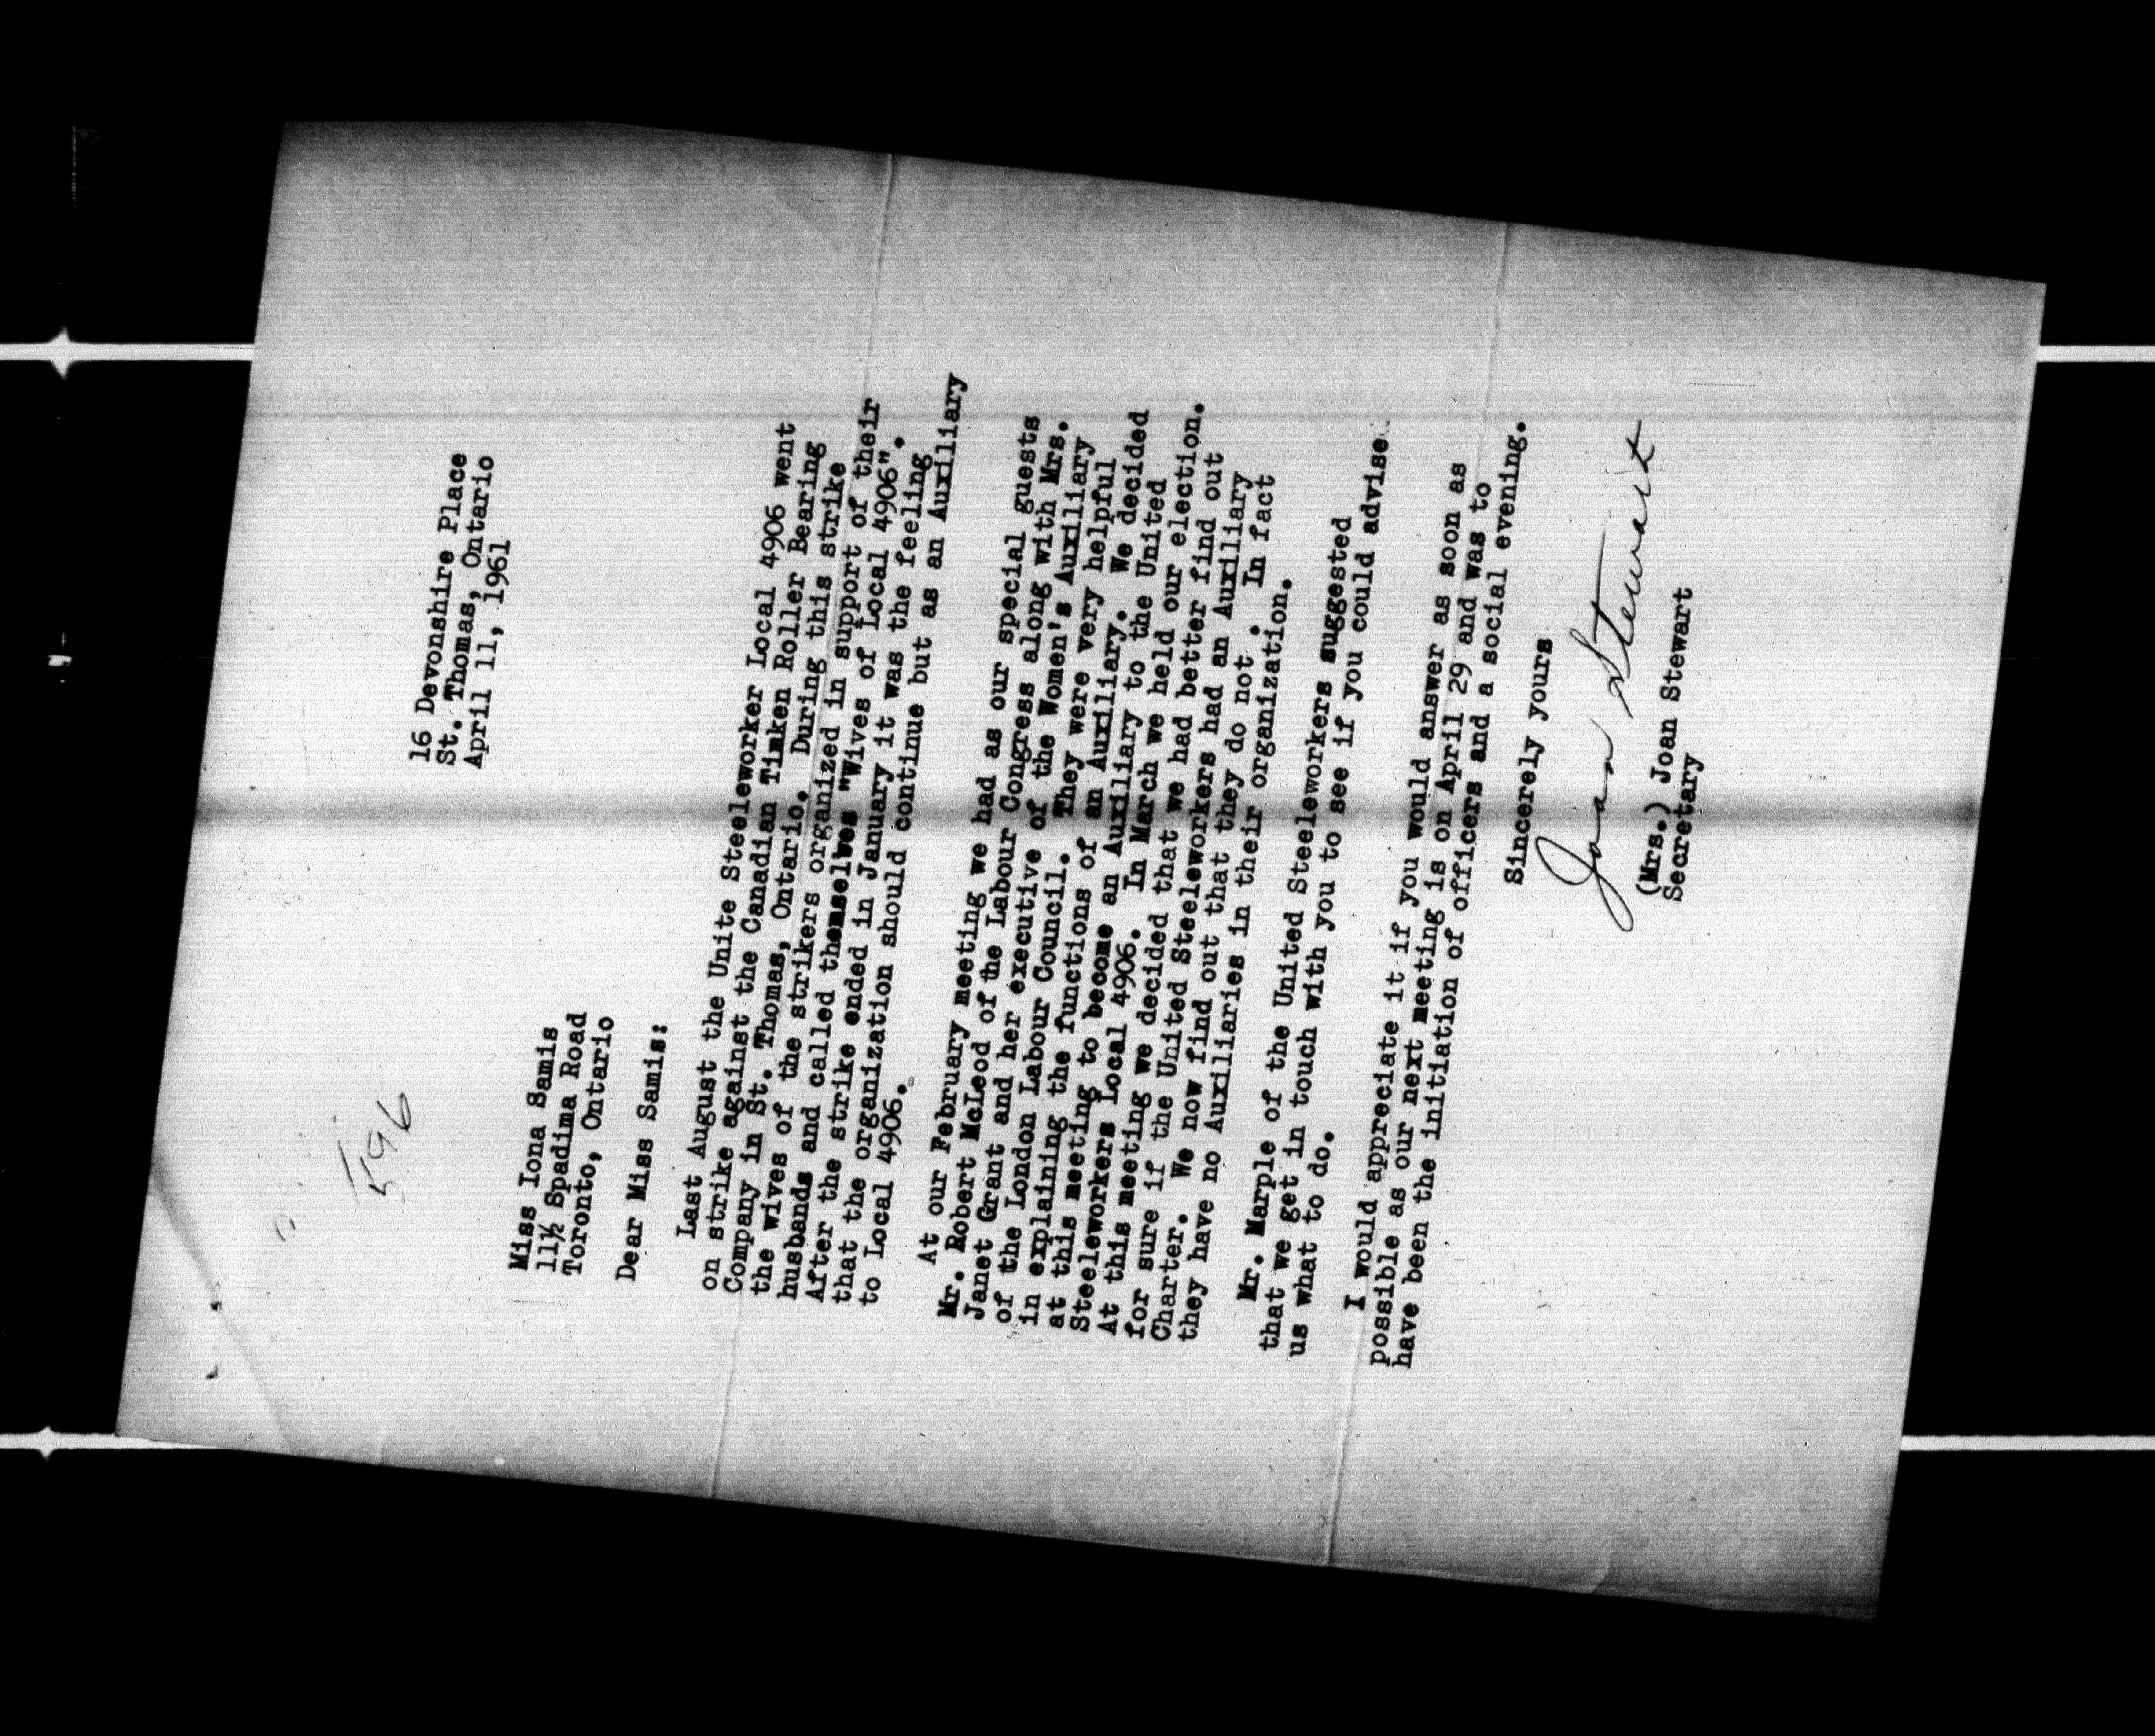 596
16 Devonshire Place
St. Thomas, Ontario
April 11, 1961
Miss Iona Samis
11½ Spadima Road
Toronto, Ontario
Dear Miss Samis:
Last August the Unite Steeleworker Local 4906 went
on strike against the Canadian Timken Roller Bearing
Company in St. Thomas, Ontario. During this strike
the wives of the strikers organized in support of their
husbands and called themselves "Wives of Local 4906".
After the strike ended in January it was the feeling
that the organization should continue but as an Auxiliary
to Local 4906.
At our February meeting we had as our special guests
Mr. Robert McLeod of the Labour Congress along with Mrs.
Janet Grant and her executive of the Women's Auxiliary
of the London Labour Council. They were very helpful
in explaining the functions of an Auxiliary. We decided
at this meeting to become an Auxiliary to the United
Steeleworkers Local 4906. In March we held our election.
At this meeting we decided that we had better find out
for sure if the United Steeleworkers had an Auxiliary
Charter. We now find out that they do not. In fact
they have no Auxiliaries in their organization.
Mr. Marple of the United Steeleworkers suggested
that we get in touch with you to see if you could advise
us what to do.
I would appreciate it if you would answer as soon as
possible as our next meeting is on April 29 and was to
have been the initiation of officers and a social evening.
Sincerely yours
Joan Stewart
(Mrs.) Joan Stewart
Secretary